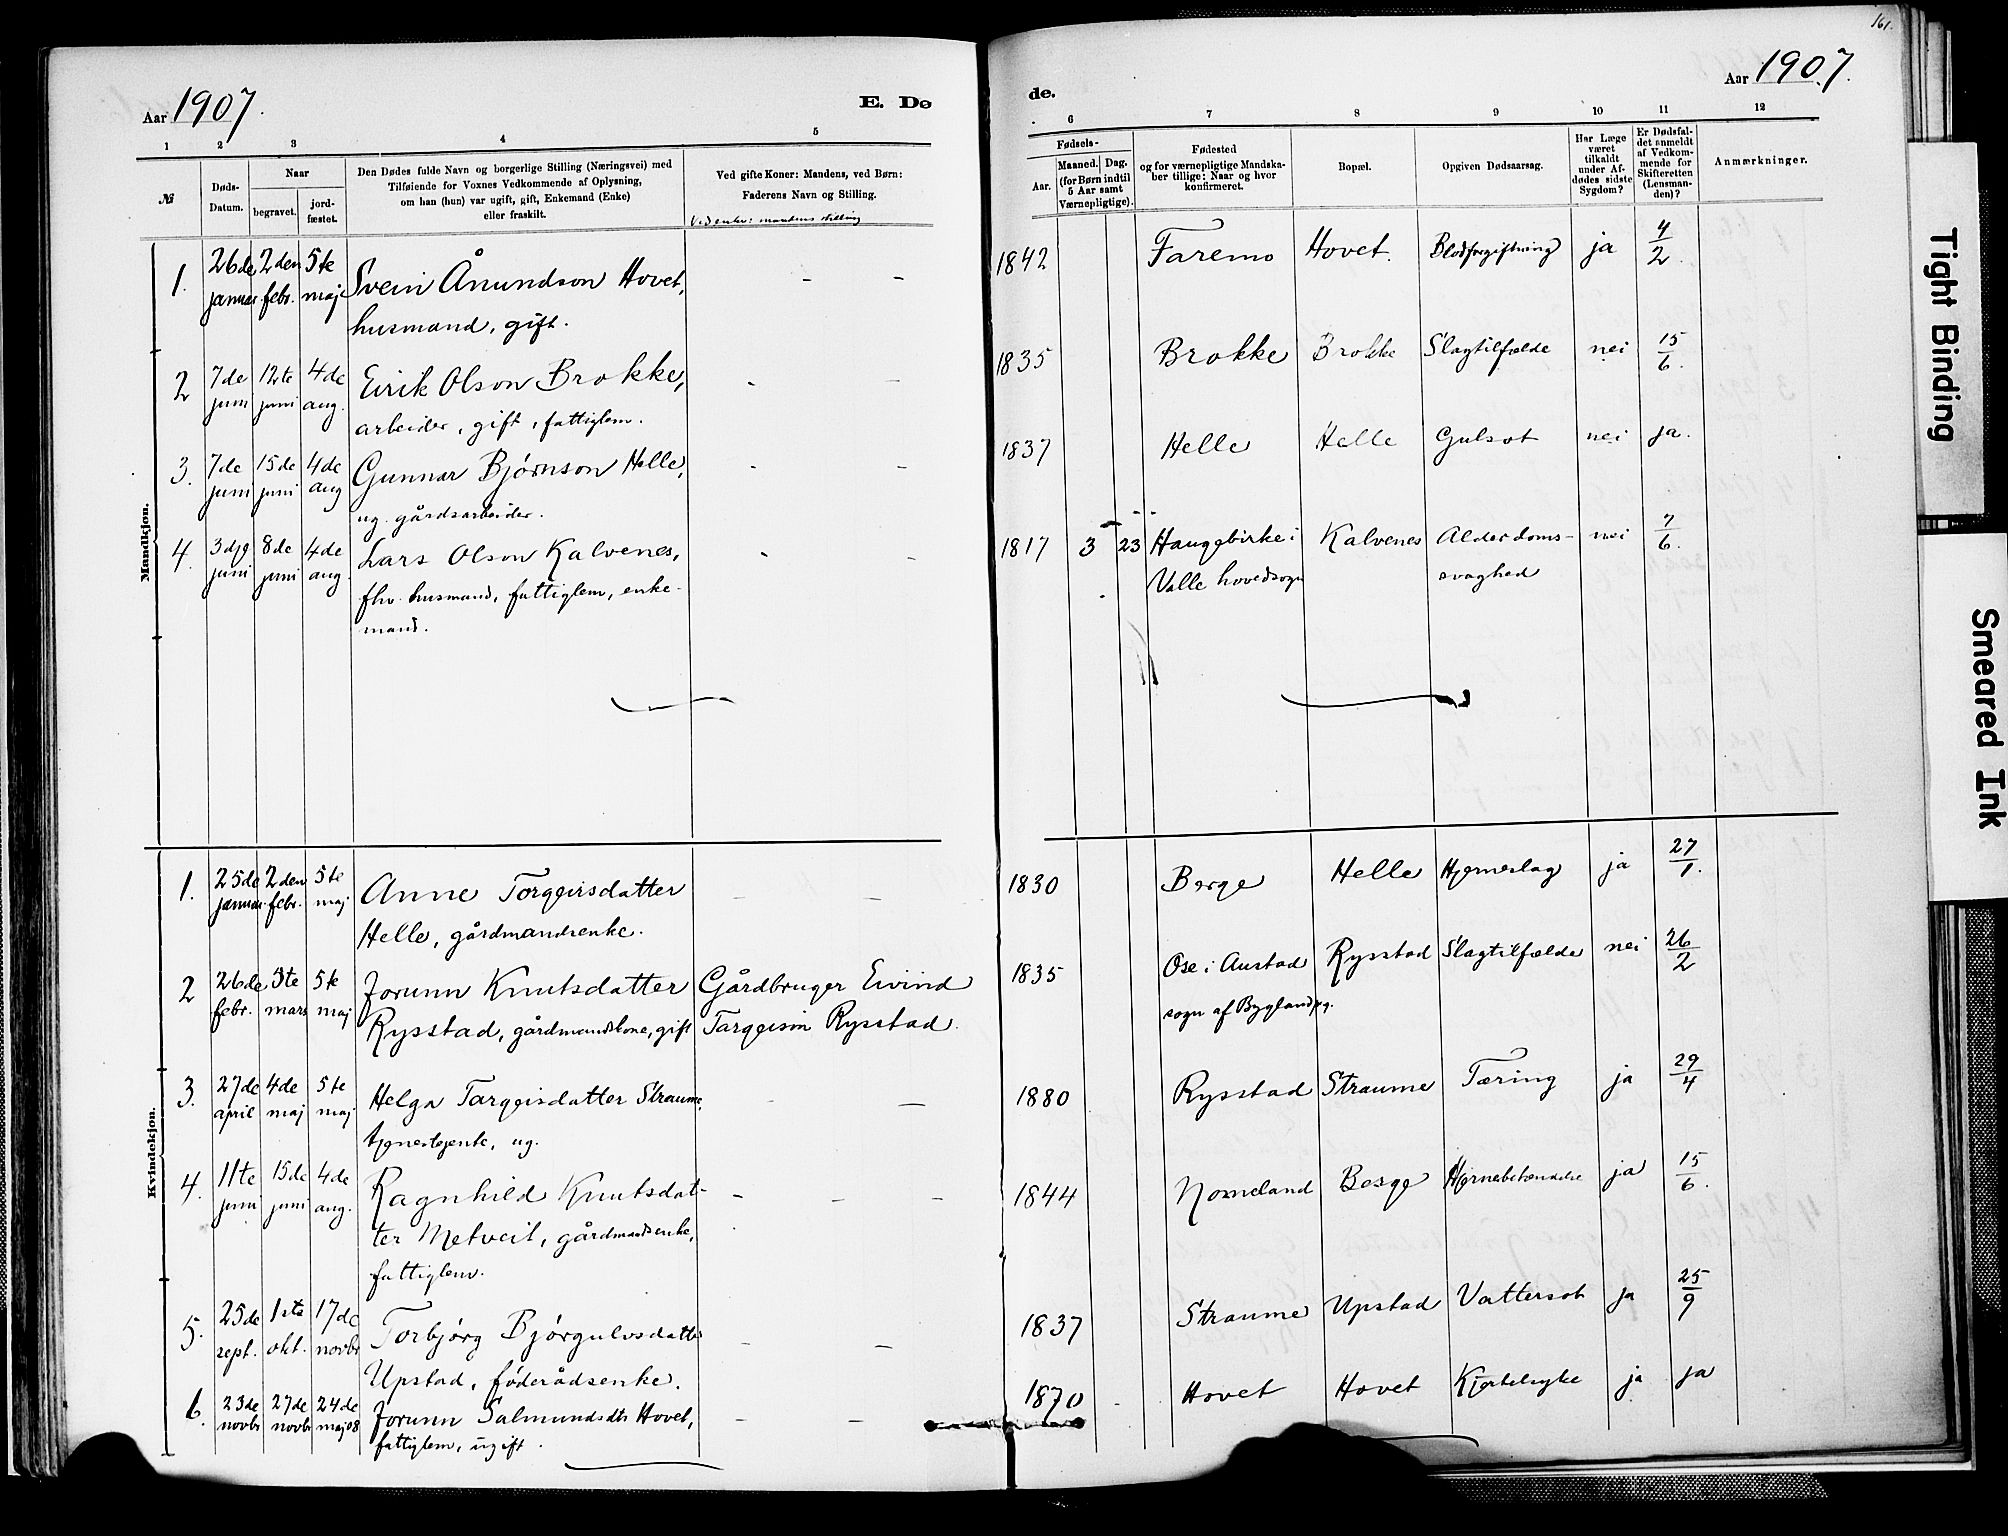 161.
Aar 1907.
E. Dø
de.
Aar 1907.
1 2 3 4 5
6 7 8 9 10 11 12
№
Døds-
Datum.
Naar
begravet.
jord-
fæstet.
Den Dødes fulde Navn og borgerlige Stilling (Næringsvei) med
Tilføiende for Voxnes Vedkommende af Oplysning,
om han (hun) var ugift, gift, Enkemand (Enke)
eller fraskilt.
Ved gifte Koner: Mandens, ved Børn:
Faderens Navn og Stilling.
Ved enker: mandens stilling
Fødsels-
Aar.
Maaned. Dag.
(for Børn indtil
5 Aar samt
Værnepligtige).
Fødested
og for værnepligtige Mandska-
ber tillige: Naar og hvor
konfirmeret.
Bopæl.
Opgiven Dødsaarsag.
Har Læge
været
tilkaldt
under Af-
dødes sidste
Sygdom?
Er Dødsfal-
det anmeldt
af Vedkom-
mende for
Skifteretten
(Lensman-
den)?
Anmærkninger.
Mandkjøn.
1. 26de 2den 5te Svein Ånundson Hovet, – – 1842 Faremo Hovet. Blodforgiftning ja 4/2.
januar febr. maj husmand, gift.
2 7de 12te 4de Eirik Olson Brokke, - – 1835 Brokke Brokke Slagtilfælde nei 15/6.
juni juni aug. arbeider, gift, fattiglem.
3. 7de 15de 4de Gunnar Bjørnson Helle, - – 1837 Helle Helle Gulsot nei ja.
juni juni aug ug. gårdsarbeider.
4. 3dje 8de 4de Lars Olson Kalvenes, - – 1817 3 23 Haugebirke i Kalvenes Alderdoms- nei 7/6.
juni juni aug. fhv. husmand, fattiglem, enke- Valle hovedsogn svaghed
mand.
Kvindekjøn.
1. 25de 2den 5te Anne Torgeirsdatter – – 1830 Berge Helle Hjerneslag ja 27/1.
januar febr. maj Helle, gårdmandsenke.
2 26de 3te 5te Jorunn Knutsdatter Gårdbruger Eivind 1835 Ose i Austad Rysstad Slagtilfælde nei 26/2
febr. mars maj Rysstad, gårdmandskone, gift Targeison Rysstad. sogn af Bygland pg.
3. 27de 4de 5te Helga Targeisdatter Straume, - – 1880 Rysstad Straume Tæring ja 29/4
april maj maj tjenestejente, ug.
4. 11te 15de 4de Ragnhild Knutsdat- – – – 1844 Nomeland Berge Hjernebetændelse ja 15/6.
juni juni aug. ter Metveit, gårdmandsenke,
fattiglem.
5. 25de 1ste 17de Torbjørg Bjørgulvsdatter – – 1837 Straume Upstad Vattersot ja 25/9
sept. okt. novbr Upstad, føderådsenke.
6. 23de 27de 24de Jorunn Salmundsdtr Hovet, – – 1870 Hovet Hovet Kjertelsyke ja ja
novbr novbr maj 08 fattiglem, ugift.
Tight Binding
Smeared Ink